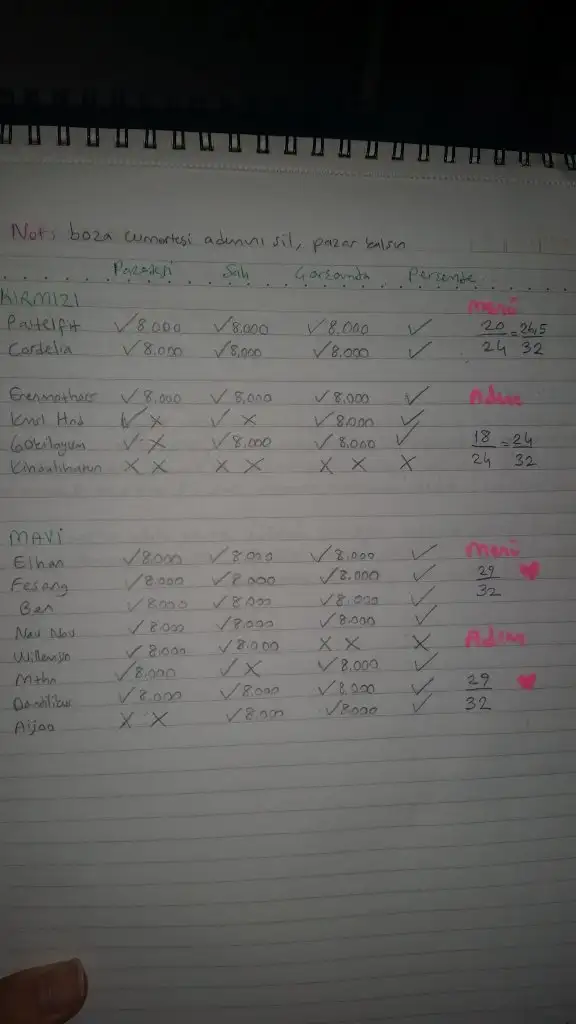 Not: boza cumartesi adımını sil, pazar kalsın
Pazartesi Salı Çarşamba Perşembe
KIRMIZI menü
Pastelfit ✓8.000 ✓8.000 ✓8.000 ✓ 20/24 = 26,5/32
Cordelia ✓8.000 ✓8.000 ✓8.000 ✓
✓8.000 ✓8.000 ✓8.000 ✓ Adım
✓ X ✓ X ✓8.000 ✓
✓ X ✓8.000 ✓8.000 ✓ 18/24 = 24/32
X X X X X X X
MAVİ
Elhan ✓8.000 ✓8.000 ✓8.000 ✓ menü
Fesang ✓8.000 ✓8.000 ✓8.000 ✓ 29/32 ♥
Ben ✓8.000 ✓8.000 ✓8.000 ✓
Nau Nau ✓8.000 ✓8.000 ✓8.000 ✓
✓8.000 ✓8.000 X X X Adım
Mthn ✓8.000 ✓ X ✓8.000 ✓
✓8.000 ✓8.000 ✓8.000 ✓ 29/32 ♥
X X ✓8.000 ✓8.000 ✓